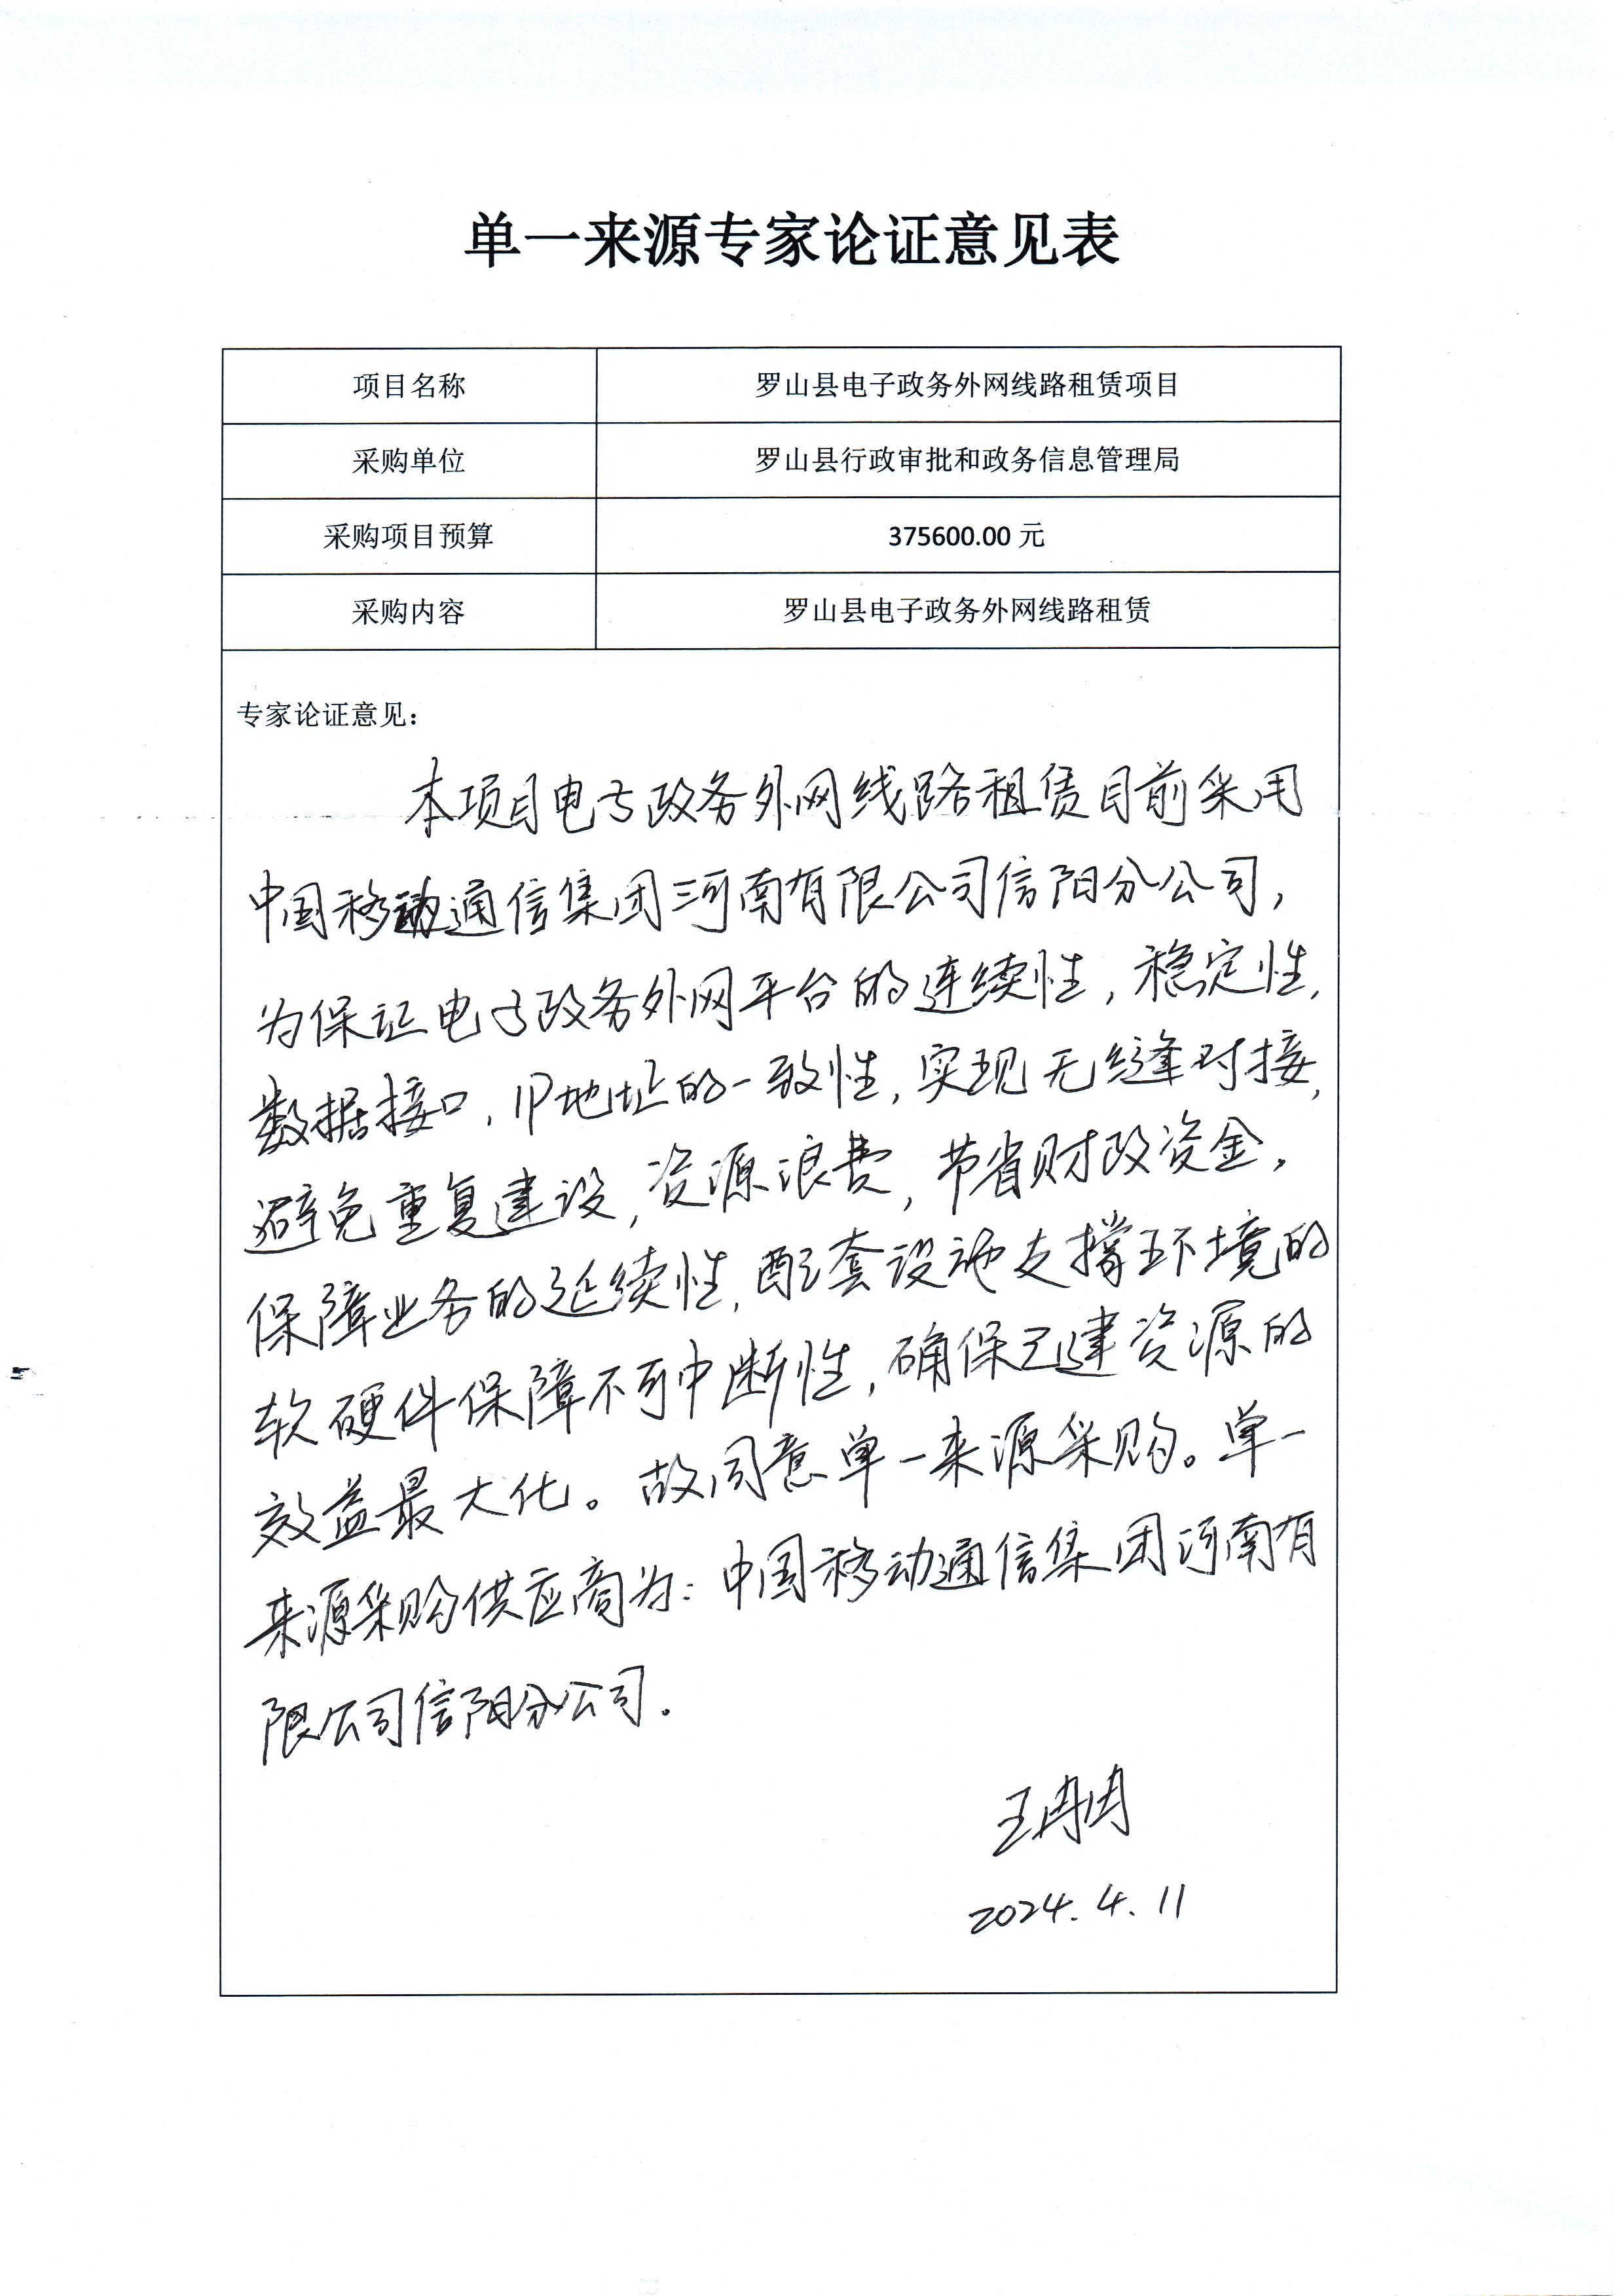 单一来源专家论证意见表
项目名称 罗山县电子政务外网线路租赁项目
采购单位 罗山县行政审批和政务信息管理局
采购项目预算 375600.00 元
采购内容 罗山县电子政务外网线路租赁
专家论证意见：
本项目电子政务外网线路租赁目前采用
中国移动通信集团河南有限公司信阳分公司，
为保证电子政务外网平台的连续性，稳定性，
数据接口，IP地址的一致性，实现无缝对接，
避免重复建设，资源浪费，节省财政资金，
保障业务的延续性，配套设施支撑环境的
软硬件保障不可中断性，确保已建资源的
效益最大化。故同意单一来源采购。单一
来源采购供应商为：中国移动通信集团河南有
限公司信阳分公司.
王冉冉
2024.4.11